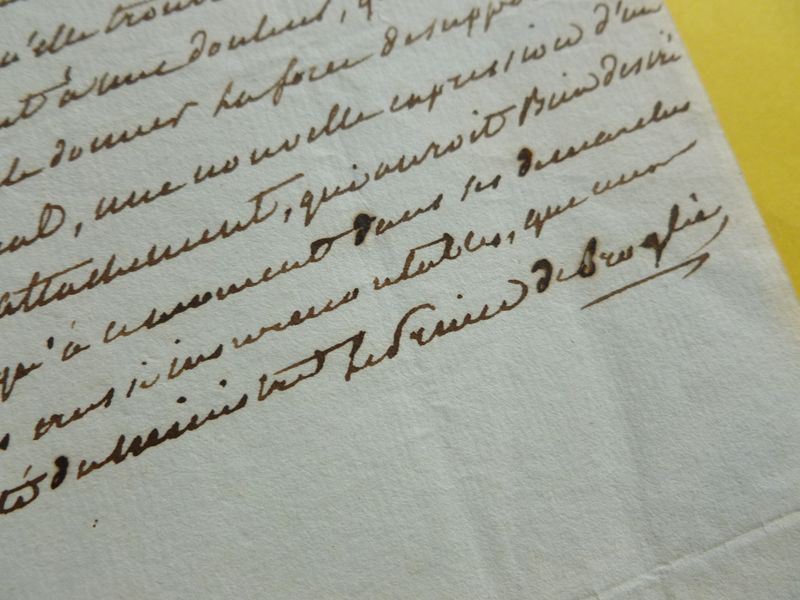 qu'elle trouv
nt à une douleur, q
le donner la force de suppo
al, une nouvelle expression d'un
attachement, qui auroit bien desiré
qu'à ce moment dans ses demarches
aussi insurmontables, que mon
té du ministre Le Prince de Broglie